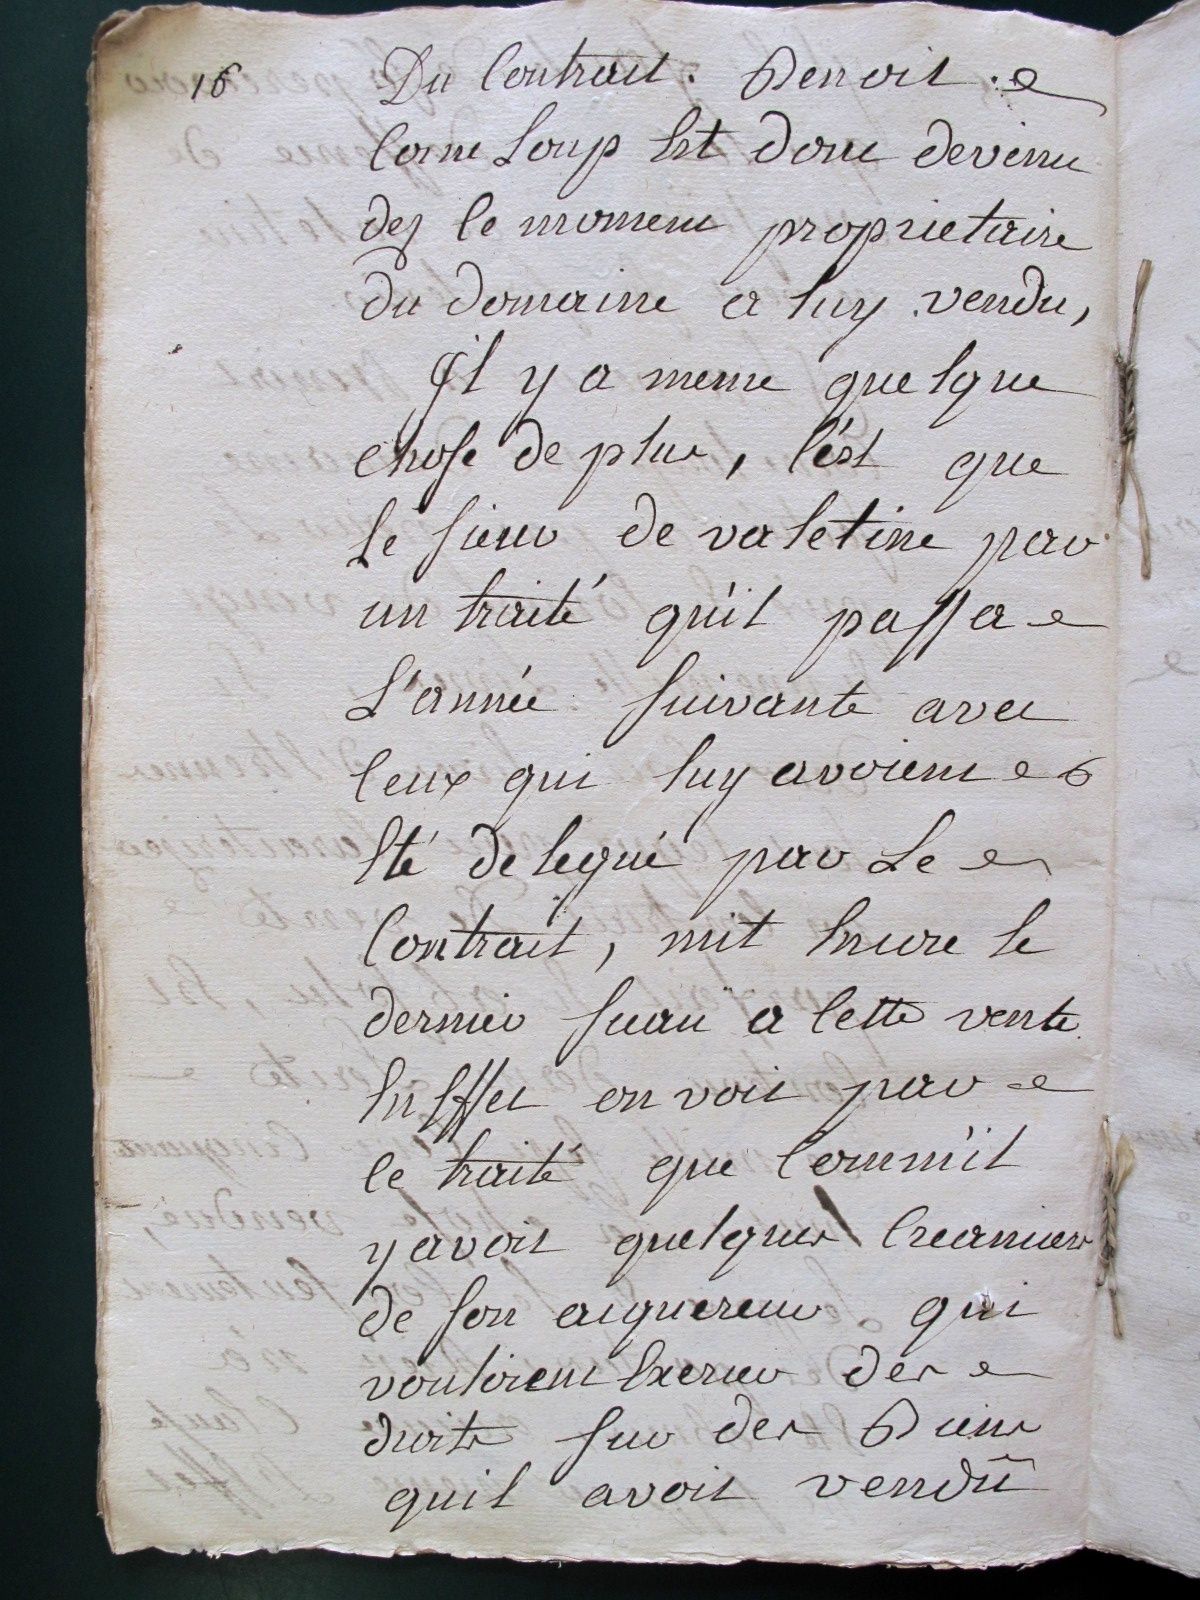 16
Du Contrait. Benoit
Come Loup Est donc devenu
des le moment proprietaire
du domaine a luy vendu,
Il y a meme quelque
chose de plus, c'est que
Le sieur de valetine par
un traité qu'il passa
L'année suivante avec
Ceux qui luy avoient
Eté delegué par Le
Contrait, mit Encore le
dernier sceau a Cette vente
En Effet on voit par
le traité que Comm'il
y avoit quelques Creanciers
de son acquereur qui
vouloient Exercer des
droits sur des Biens
quil avoit vendû